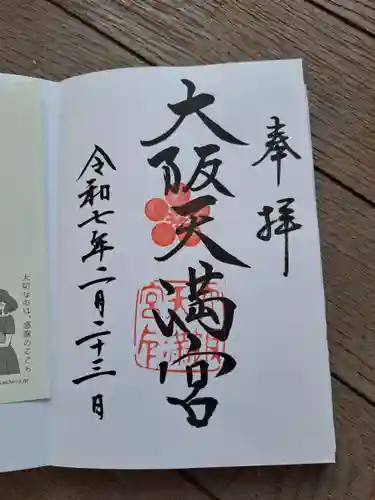 奉拝
大阪天満宮
令和七年二月二十三日
大切なのは、感謝のこころ